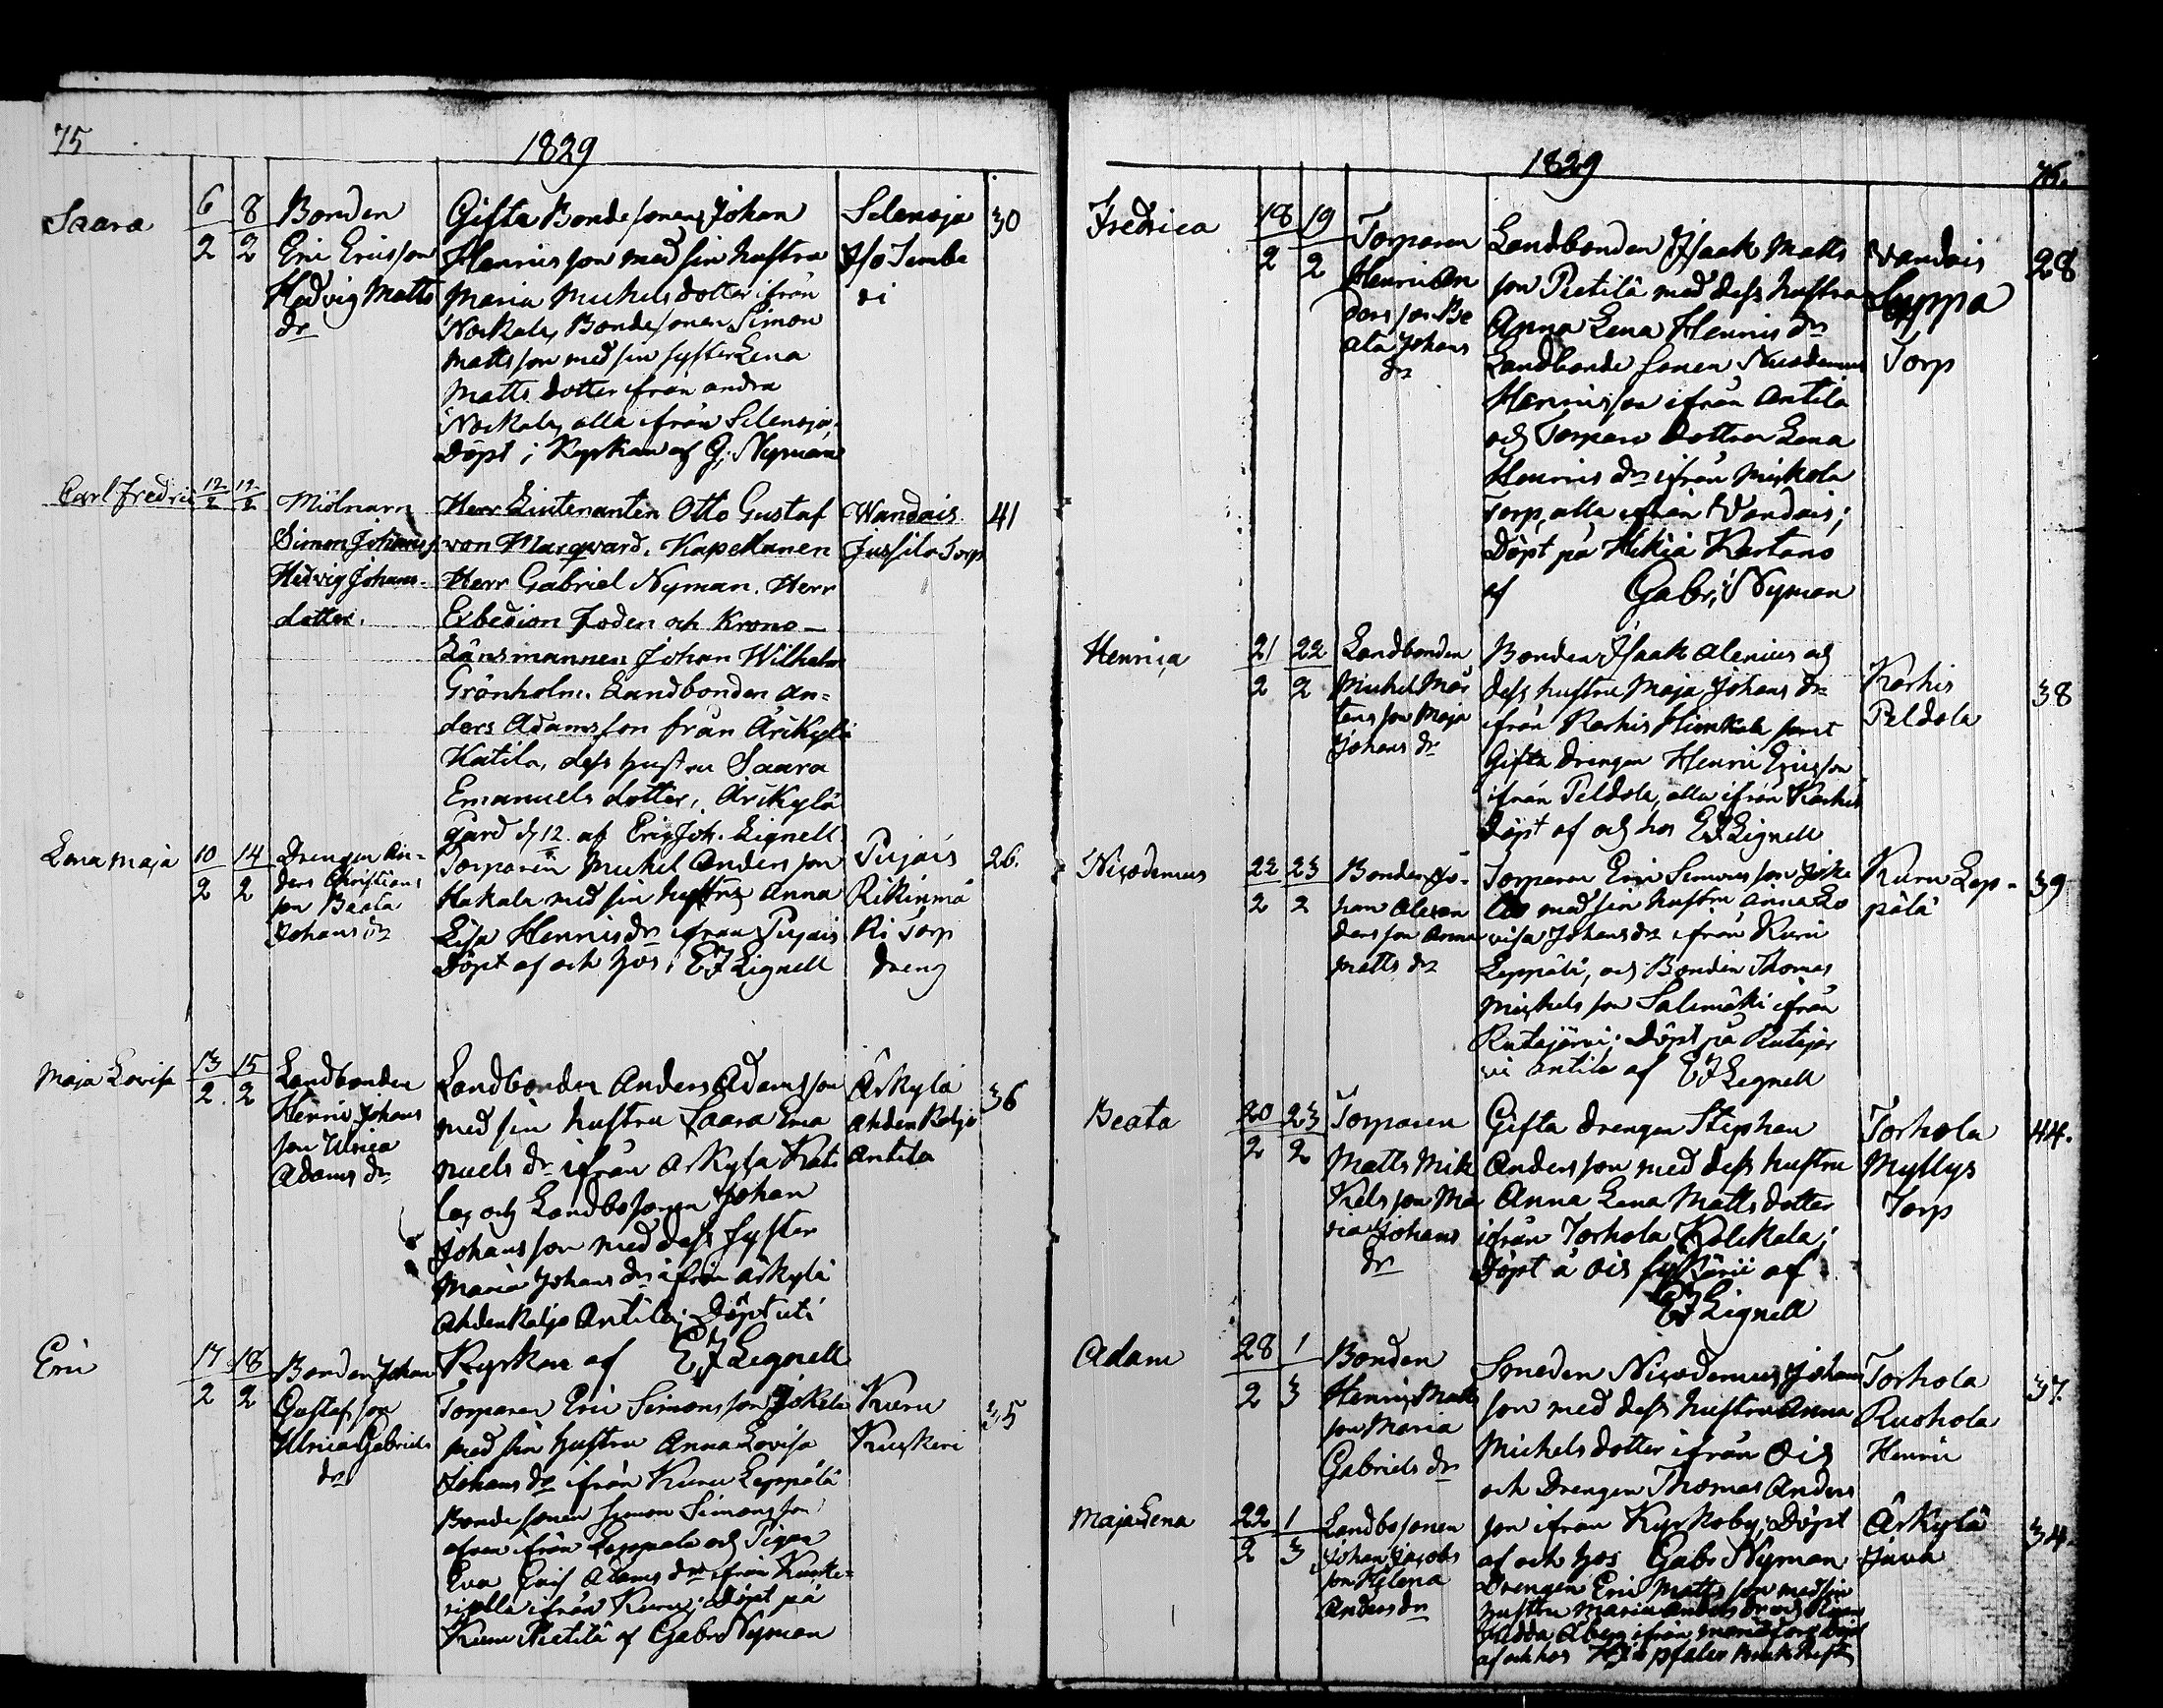 75
1829
Saara
6 8
2 2
Bonden
Eric Ericsson
Hedvig Matts
dr
Gifta Bondesonen Johan
Henricsson med sin hustru
Maria Michelsdotter ifrån
Nockala, Bondesonen Simon
Mattsson med sin syster Lena
Matts dotter ifrån andra
Nockala, alla ifrån Selensjo,
Döpt i Kyrkan af G. Nyman
Selensja
Iso Tembe
di
30
Carl Fredric
12 12
2 2
Mjölnarn
Simon Johans s.
Hedvig Johans-
dotter.
Herr Lieutenanten Otto Gustaf
von Marqvard. Kapellanen
Herr Gabriel Nyman. Herr
Foden och Krono-
Länsmannen Johan Wilhelm
Grönholm. Landbonden An-
ders Adamsson från Ärikylä
Katila, dess hustru Saara
Emanuels dotter. Ärikylä
gård d. 12/2 af Eric Joh. Lignell
Wandais
Jussila Torp
41
Lena Maja
10 14
2 2
Drengen An-
ders Christians
son Beata
Johans dr
Torparen Michel Andersson
Hakala med sin hustru Anna
Lisa Henricsdr ifrån Pujais
Döpt af och hos E J Lignell
Pujais
Rikinmä
ki Torp
dreng
26.
Maja Lovisa
13 15
2 2
Landbonden
Henric Johans
son Ulrica
Adams dr
Landbonden Anders Adamsson
med sin hustru Saara Ema
nuels dr ifrån Arkyla Kati
la, och Landbosonen Johan
Johansson med dess syster
Maria Johans dr ifrån Arkylä
Ahdenkaljo Antila; Döpt uti
Kyrkan af E J Lignell
Arkylä
Ahdenkaljo
Antila
36
Eric
17 18
2 2
Bonden Johan
Gustafsson
Ulrica Gabriels
dr
Torparen Eric Simonsson Jokela
med sin hustru Anna Lovisa
Johans dr ifrån Kuru Leppälä
Bondesonen Symon Simonsson
ifrån Leppälä och Pigan
Eva Adams dr ifrån Kuske-
ri alla ifrån Kuru; Döpt på
Kuru Pietilä af Gabr. Nyman
Kuru
Kuskeri
35
1829
76.
Fredrica
18 19
2 2
Torparen
Henric An
dersson Be
ata Johans
dr
Landbonden Isaak Matts
son Pietilä med dess hustru
Anna Lena Henrics dr
Landbonde sonen Nicodemus
Henricsson ifrån Antila
och Torpare dottren Lena
Henrics dr ifrån Miskola
Torp, alla ifrån Vandais;
Döpt på Hikiä Kartano
af Gabr. Nyman
Vandais
Seppä
Torp
28
Henrica
21 22
2 2
Landbonden
Michel Mår
tensson Maja
Johans dr
Bonden Isaak Alenius och
dess hustru Maja Johans dr
ifrån Karhis Hiunkala samt
Gifta drengen Henric Ericsson
ifrån Peldola, alla ifrån Karhis
Döpt af och hos E J Lignell
Karhis
Peldola
38
Nicodemus
22 23
2 2
Bonden Jo-
han Alexan
dersson Anna
Matts dr
Torparen Eric Simonsson Joke
la med sin hustru Anna Lo
visa Johans dr ifrån Kuru
Leppälä, och Bonden Thomas
Michelsson Salomäki ifrån
Rutajärvi; Döpt på Rutajär
vi Antila af E J Lignell
Kuru Lep-
pälä
39
Beata
20 23
2 2
Torparen
Matts Mik
kelsson Ma
ria Johans
dr
Gifta drengen Stephan
Andersson med dess hustru
Anna Lena Matts dotter
ifrån Torhola Kolikala;
Döpt å Ois af
E J Lignell
Torhola
Myllys
Torp
44.
Adam
28 1
2 3
Bonden
Henric Matts
son Maria
Gabriels dr
Smeden Nicodemus Johans
son med dess hustru Anna
Michels dotter ifrån Ois
och Drengen Thomas Anders
son ifrån Kyrkoby; Döpt
af och hos Gabr Nyman
Torhola
Ruohola
Henric
37.
Maja Lena
22 1
2 3
Landbosonen
Johan Jacobs
son Helena
Anders dr
Drengen Eric Mattsson med sin
hustru Maria Anders dr och Pigan
Hedda Åberg ifrån Torp, Döpt
af och hos
Arkylä
Juva
34.